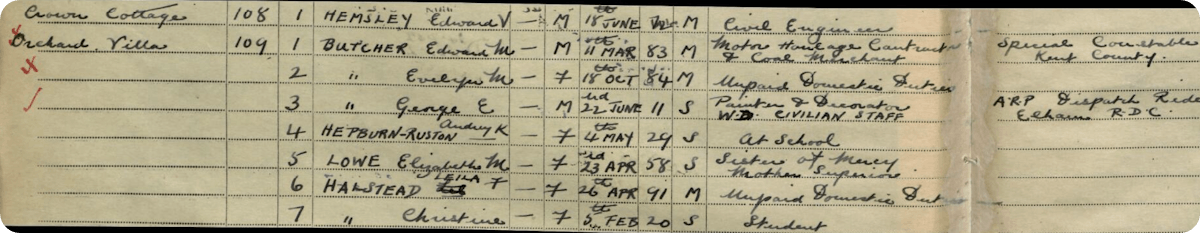 Crown Cottage 108 1 HEMSLEY Edward V — M 18th JUNE M Civil Engineer
Orchard Villa 109 1 BUTCHER Edward M — M 11th MAR 83 M Motor Haulage Contractor Special Constable
& Coal Merchant Kent County.
2 " Evelyn M — F 18th OCT 84 M Unpaid Domestic Duties
3 " George E — M 22nd JUNE 11 S Painter & Decorator A.R.P Dispatch Rider
W.D. CIVILIAN STAFF Elham R.D.C.
4 HEPBURN-RUSTON Audrey K — F 4th MAY 29 S At School
5 LOWE Elizabeth M — F 23rd APR 58 S Sister of Mercy
Mother Superior
6 HALSTEAD LEILA F — F 26th APR 91 M Unpaid Domestic Duties
7 " Christine — F 5th FEB 20 S Student